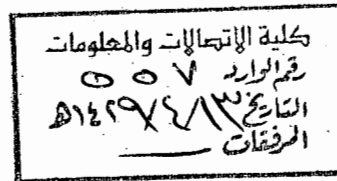 كلية الاتصالات والمعلومات
رقم الوارد ٥٥٧
التاريخ ١٣/٤/١٤٢٩هـ
المرفقات